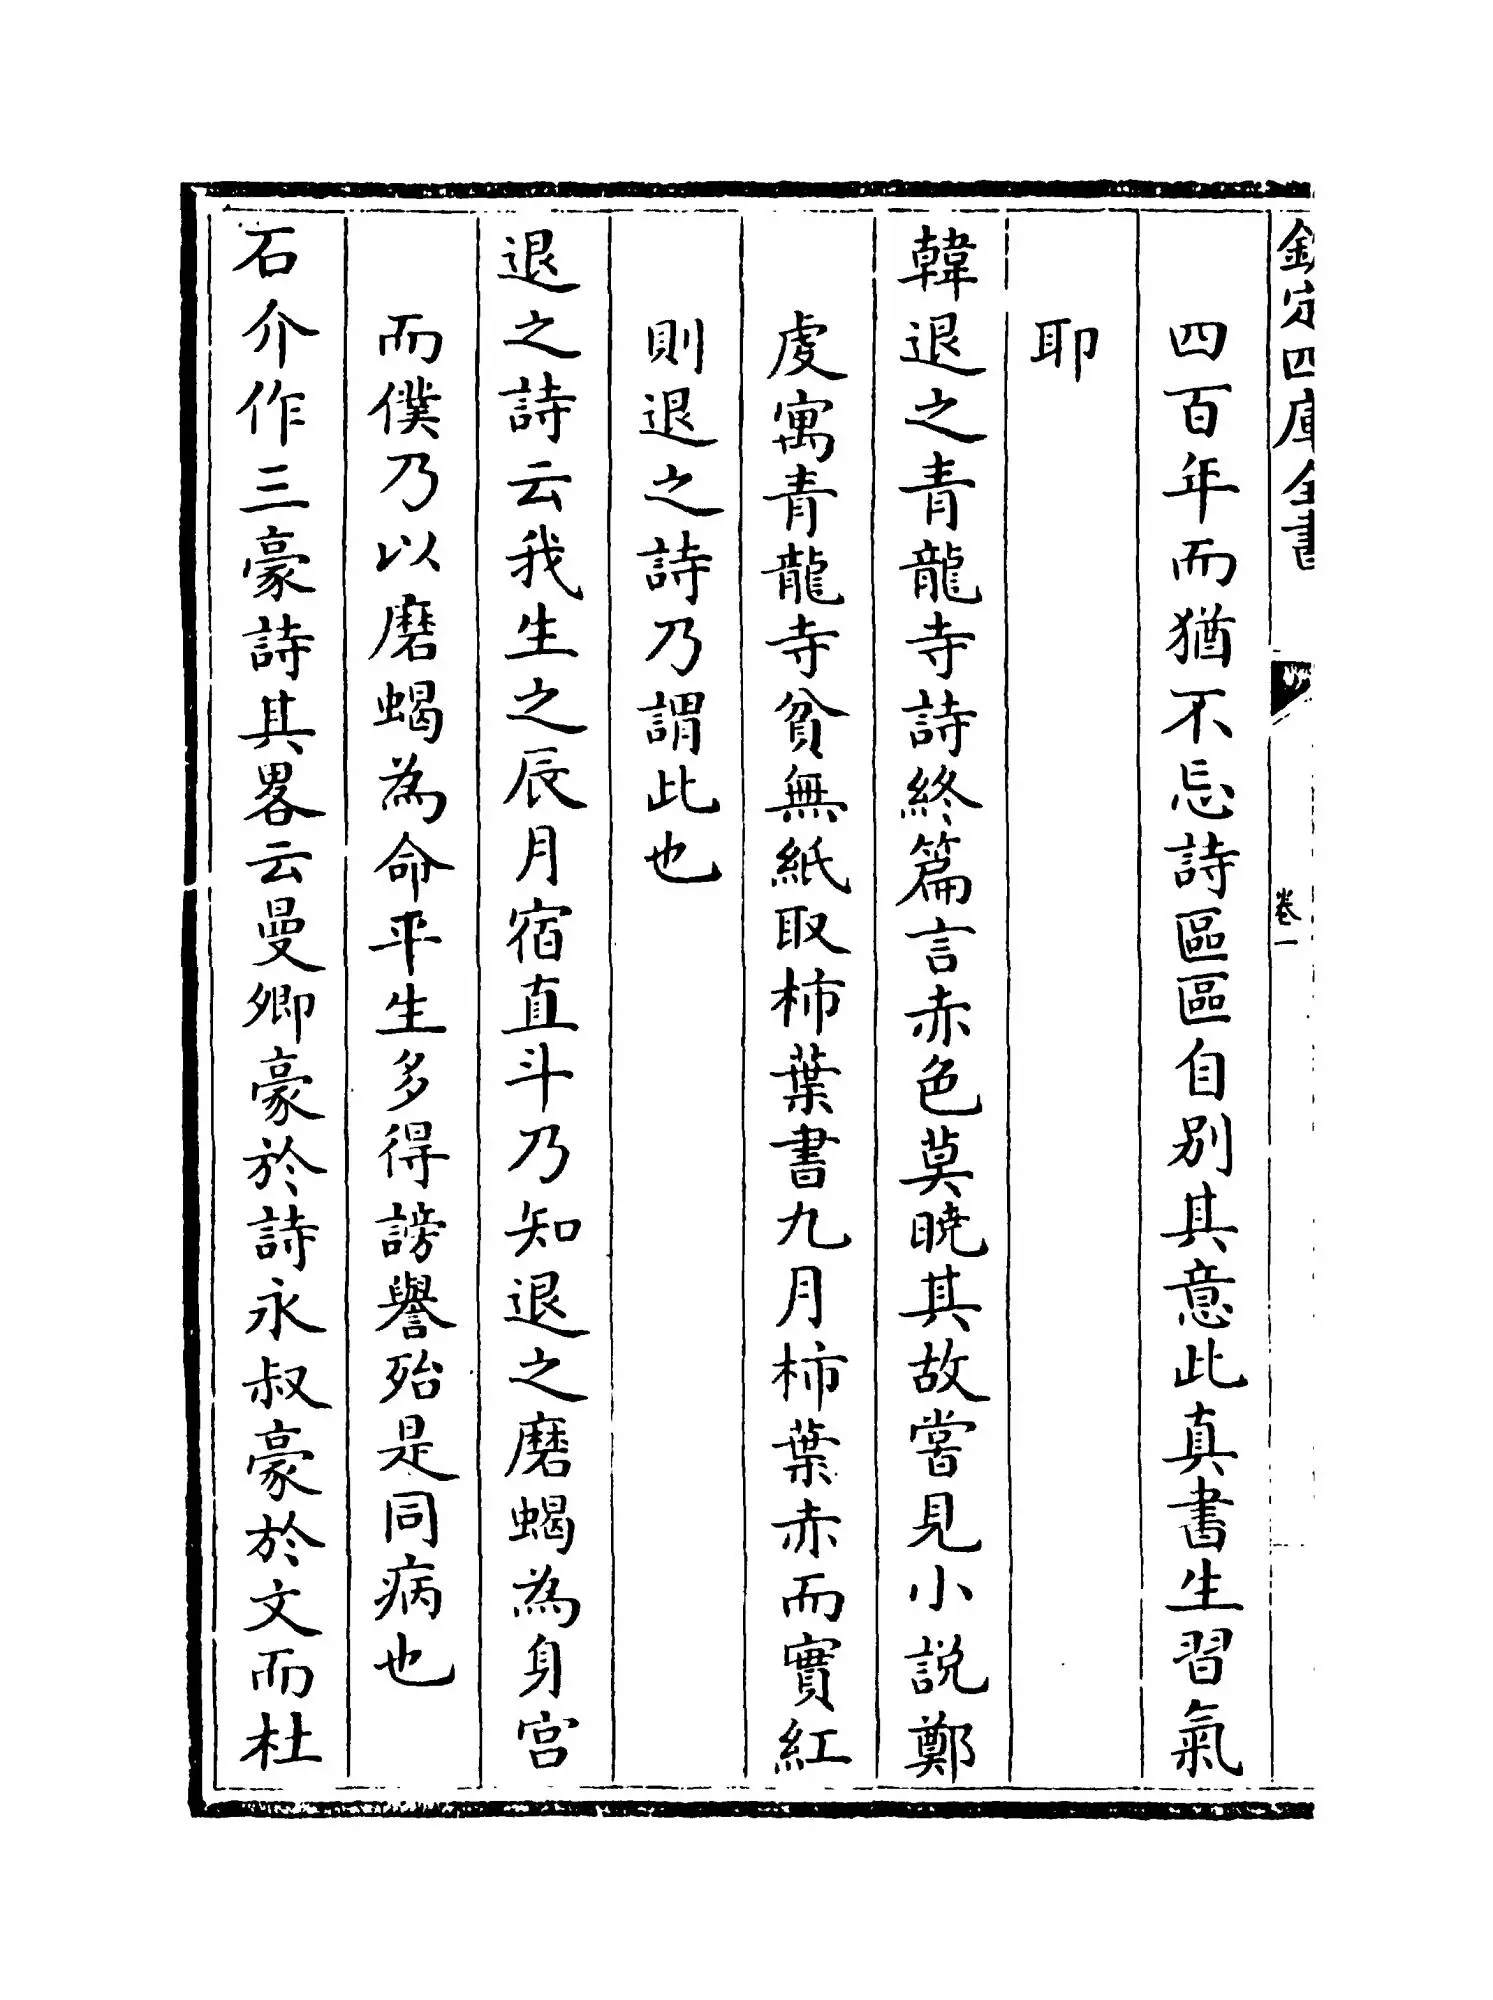 欽定四庫全書
卷一
四百年而猶不忘詩區區自别其意此真書生習氣
耶
韓退之青龍寺詩終篇言赤色莫曉其故嘗見小説鄭
虔寓青龍寺貧無紙取柿葉書九月柿葉赤而實紅
則退之詩乃謂此也
退之詩云我生之辰月宿直斗乃知退之磨蝎為身宫
而僕乃以磨蝎為命平生多得謗譽殆是同病也
石介作三豪詩其畧云曼卿豪於詩永叔豪於文而杜